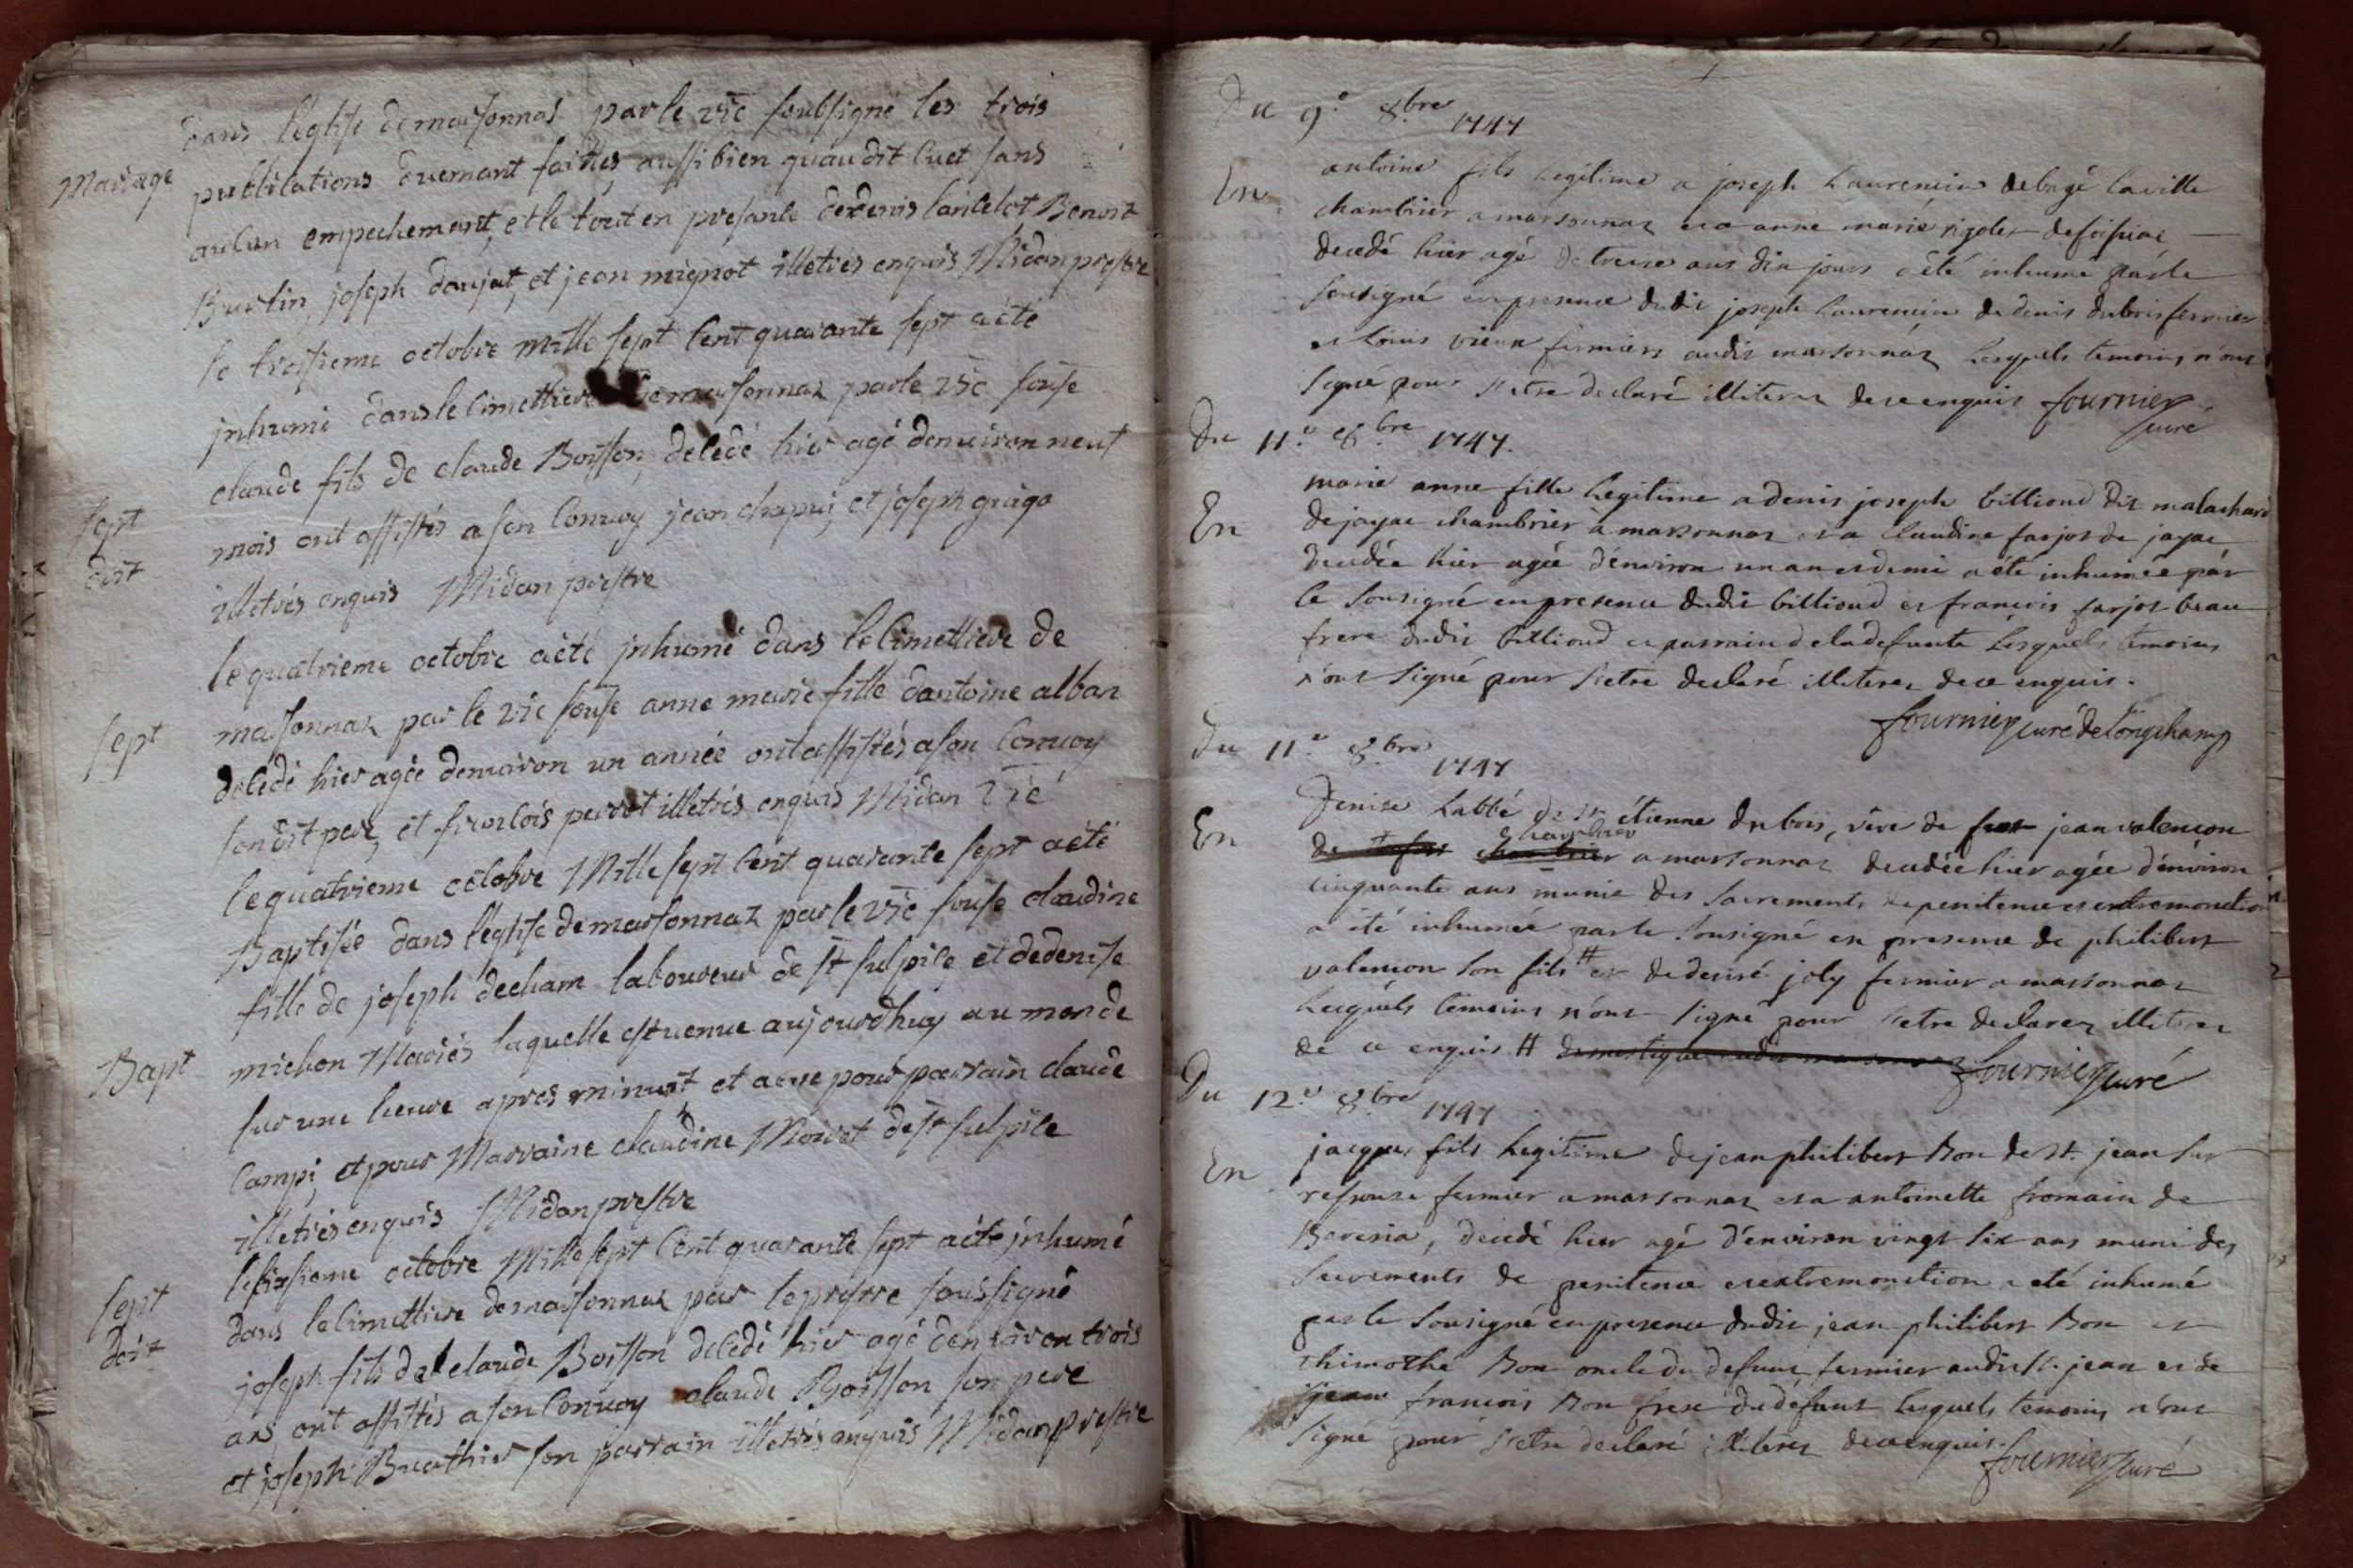 dans l'eglise de marsonnas par le vic soubsigné les trois
Mariage
publications duemant faittes aussi bien quaudit luet sans
aulcun empechemant, et le tout en presante de denis lancelot Benoit
Burtin, joseph daujat, et jean mignot illetrés enquis Midan prestre
le troisieme octobre mille sept cent quarante sept a été
inhumé dans le cimettiere de marsonnaz par le vic sousé
claude fils de claude Boisson, decedé hier agé denuiron neuf
sept
mois ont assistés a son convoy jean chapuj, et joseph
doit
illetrés enquis Midan prestre
le quatrieme octobre a été inhumé dans le cimettiere de
marsonnaz par le vic sousé anne marie fille dantoine alban
sept
decedé hier agée denuiron un année ont assistés a son convoy
son dit pere, et francois perrot illetrés enquis Midan vic
le quatrieme octobre Mille sept cent quarante sept a été
Baptisée dans l'eglise de marsonnaz par le vic sousé claudine
fille de joseph decham laboureur de st sulpice et de denise
Bapt
michon Mariés laquelle est venue aujourdhuy au monde
sur une heure apres minuit, et a eue pour parrain claude
campi, et pour Marraine claudine Moiret de st sulpice
illetrés enquis Midan prestre
le sixieme octobre Mille sept cent quarante sept a été inhumé
sept
dans le cimettiere de marsonnaz par le prestre soussigné
doit
joseph fils de claude Boisson decedé hier agé denuiron trois
ans ont assistés a son convoy claude Boisson son pere
et joseph Breathier son parrain illetrés enquis Midan prestre
Du 9.e 8.bre 1747
En
antoine fils legitime a joseph laurencin de bagé la ville
chambrier a marsonnaz et a anne marie rigolet de foissiac
decedé hier agé de treise ans dix jours a été inhumé par le
sousigné en presence dudit joseph laurencin de denis dubois fermier
et loüis vieux fermiers audit marsonnaz lesquels temoins n'ont
signé pour s'etre declaré illiterez de ce enquis fournier
curé
Du 11.e 8.bre 1747.
En
marie anne fille legitime a denis joseph billioud dit malachard
de jayac chambrier à marsonnaz et a claudine farjot de jayac
decedée hier agée d'environ un an et demi a été inhumée par
le sousigné en presence dudit billioud et francois farjot beau
frere dudit billioud et parrain de la defunte lesquels temoins
n'ont signé pour s'etre declaré illiterez de ce enquis.
fournier curé de longchamp
Du 11.e 8.bre 1747
En
Denise Labbé de St étienne du bois, vêve de jean valencon
chambrier
de chambrier a marsonnaz decedée hier agée d'environ
cinquante ans munie des sacrements de penitence et extremonction
a été inhumée par le sousigné en presence de philibert
valencon son fils # et de desiré joly fermier a marsonnaz
lesquels temoins n'ont signé pour s'etre declarez illiterez
de ce enquis # domestique audit marsonnaz fournier curé
Du 12.e 8.bre 1747
En
jacques fils legitime de jean philibert Bon de St. jean sur
ressouze fermier a marsonnaz et a antoinette fromain de
Beresia, decedé hier agé d'environ vingt six ans muni des
sacrements de penitence et extremonction a été inhumé
par le sousigné en presence dudit jean philibert Bon et
thimothé Bon oncle du defunt fermier audit St. jean et de
jean francois Bon frere du défunt lesquels temoins n'ont
signé pour s'etre declaré illiterez de ce enquis. fournier curé